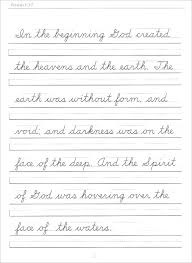 In the beginning God created
the heavens and the earth. The
earth was without form, and
void; and darkness was on the
face of the deep. And the Spirit
of God was hovering over the
face of the waters.